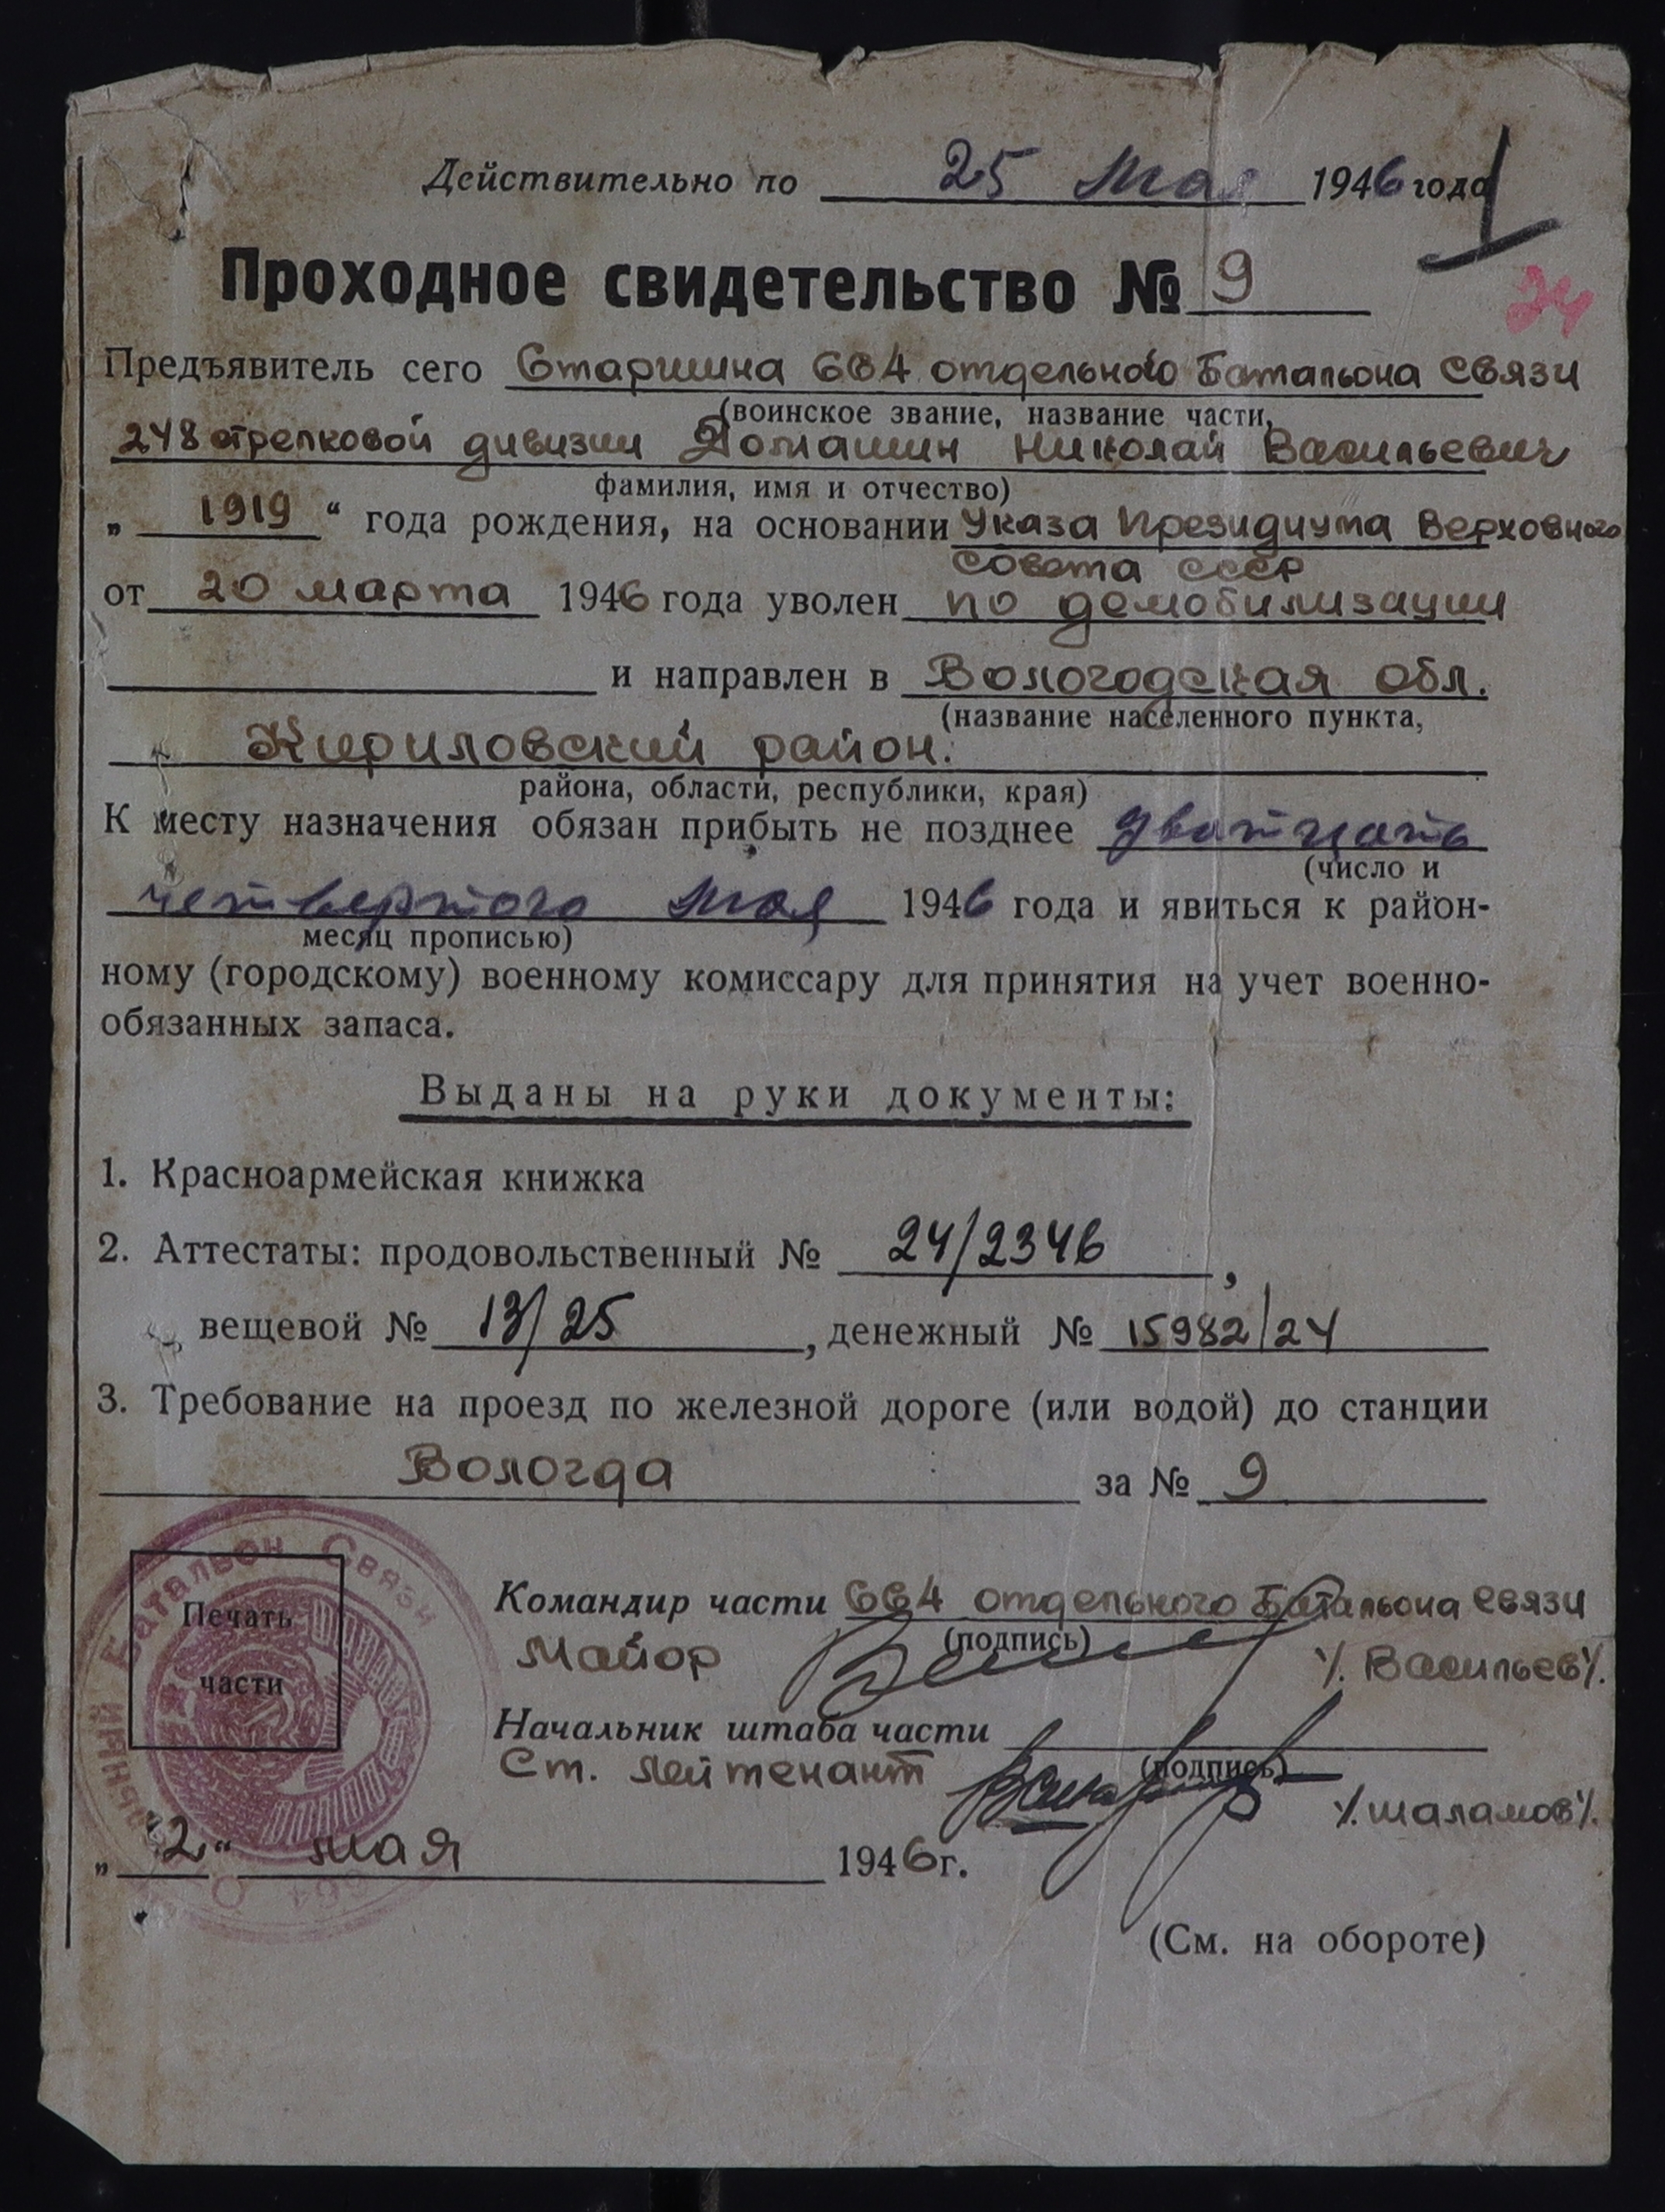 Действительно по 25 Мая 1946 года
1
Проходное свидетельство № 9
24
Предъявитель сего Старшина 664 отдельного Батальона Связи
(воинское звание, название части,
248 стрелковой дивизии Домашин Николай Васильевич
фамилия, имя и отчество)
„ 1919 “ года рождения, на основании Указа Президиума Верховного
Совета СССР
от 20 марта 1946 года уволен по демобилизации
и направлен в Вологодская обл.
(название населенного пункта,
Кириловский район.
района, области, республики, края)
К месту назначения обязан прибыть не позднее дватцать
(число и
четвертого Мая 1946 года и явиться к район-
месяц прописью)
ному (городскому) военному комиссару для принятия на учет военно-
обязанных запаса.
Выданы на руки документы:
1. Красноармейская книжка
2. Аттестаты: продовольственный № 24/2346,
вещевой № 13/25, денежный № 15982/24
3. Требование на проезд по железной дороге (или водой) до станции
Вологда за № 9
Батальон Связи
Печать
части
Командир части 664 отдельного Батальона связи
(подпись)
Майор /. Васильев/.
Начальник штаба части
(подпись)
Ст. лейтенант /. Шаламов/.
„ 2 “ мая 1946 г.
664
(См. на обороте)